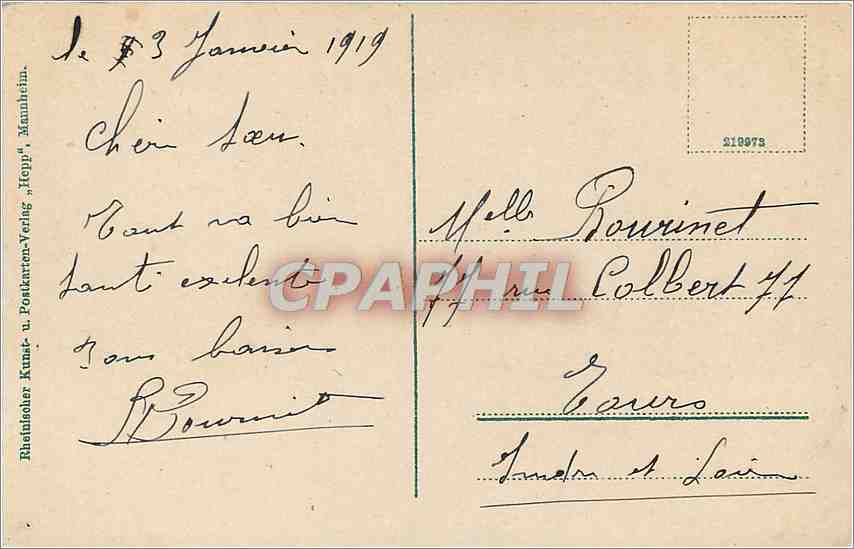 le 3 Janvier 1919
Cher Sœur.
Tout va bien
santé exelente
Bons baisers
Rheinischer Kunst- u. Postkarten-Verlag „Hepp", Mannheim.
219973
Melle Bourinet
77 rue Colbert 77
Tours
Indre et Loire
CPAPHIL